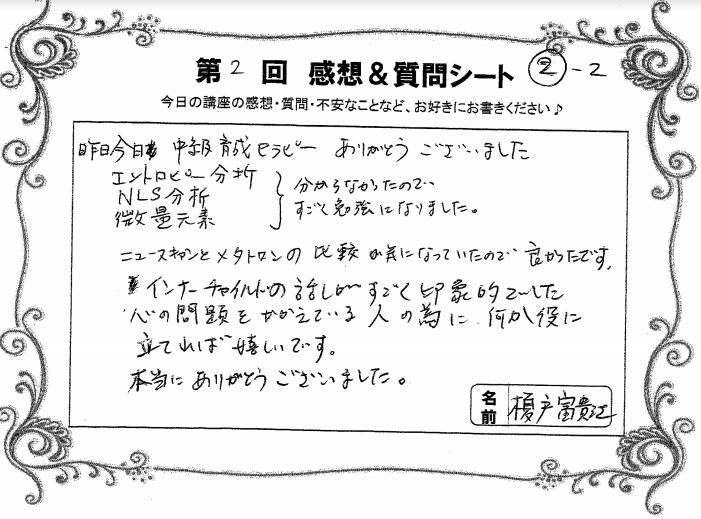 第2回 感想&質問シート ②-2
今日の講座の感想・質問・不安なことなど、お好きにお書きください♪
昨日今日 中級育成セラピー ありがとうございました
エントロピー分析
NLS分析
微量元素
分からなかったので
すごく勉強になりました。
ニュースキャンとメタトロンの比較が気になっていたので良かったです。
インナーチャイルドの話しがすごく印象的でした
心の問題をかかえている人の為に何か役に
立てれば嬉しいです。
本当にありがとうございました。
名前 榎戸富貴江